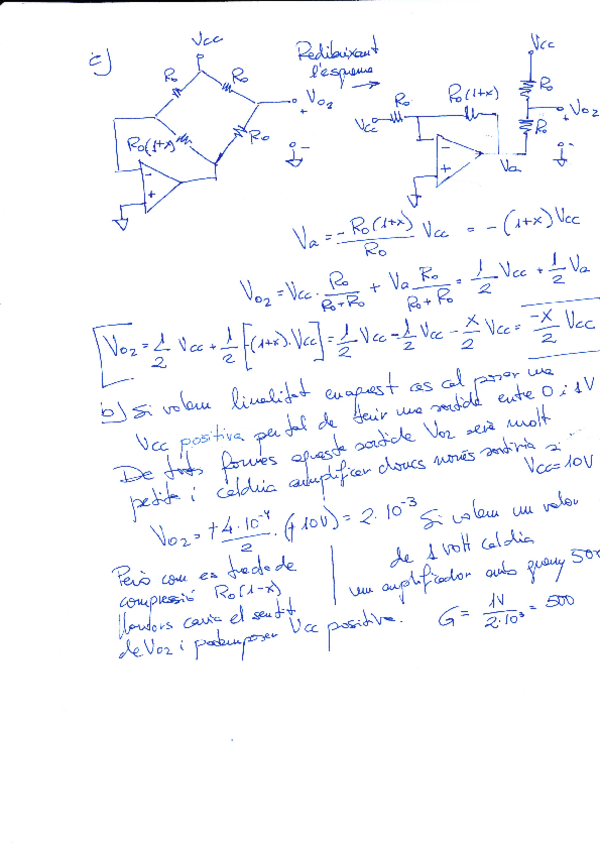 c)
Vcc
Ro Ro
Ro(1+x) Ro
Vo2
+
-
- +
Redibuixant
l'esquema
Vcc Ro Ro(1+x)
- +
Va
Vcc
Ro
Ro
+ Vo2
-
Va = -Ro(1+x)/Ro Vcc = -(1+x)Vcc
Vo2 = Vcc · Ro/(Ro+Ro) + Va Ro/(Ro+Ro) = 1/2 Vcc + 1/2 Va
Vo2 = 1/2 Vcc + 1/2 [-(1+x)·Vcc] = 1/2 Vcc - 1/2 Vcc - x/2 Vcc = -x/2 Vcc
b) Si volem linealitat en aquest cas cal posar una
Vcc positiva per tal de tenir una sortida entre 0 i 1V
De totes formes aquesta sortida Vo2 serà molt
petita i caldria amplificar doncs només sortiria si
Vcc=10V
Vo2 = +4·10⁻⁴/2 · (+10V) = 2·10⁻³
Si volem un valor
de 1 volt caldria
un amplificador amb guany 500
G = 1V/2·10³ = 500
Però com es tracta de
compressió Ro(1-x)
llavors canvia el sentit
de Vo2 i podem posar Vcc positiva.